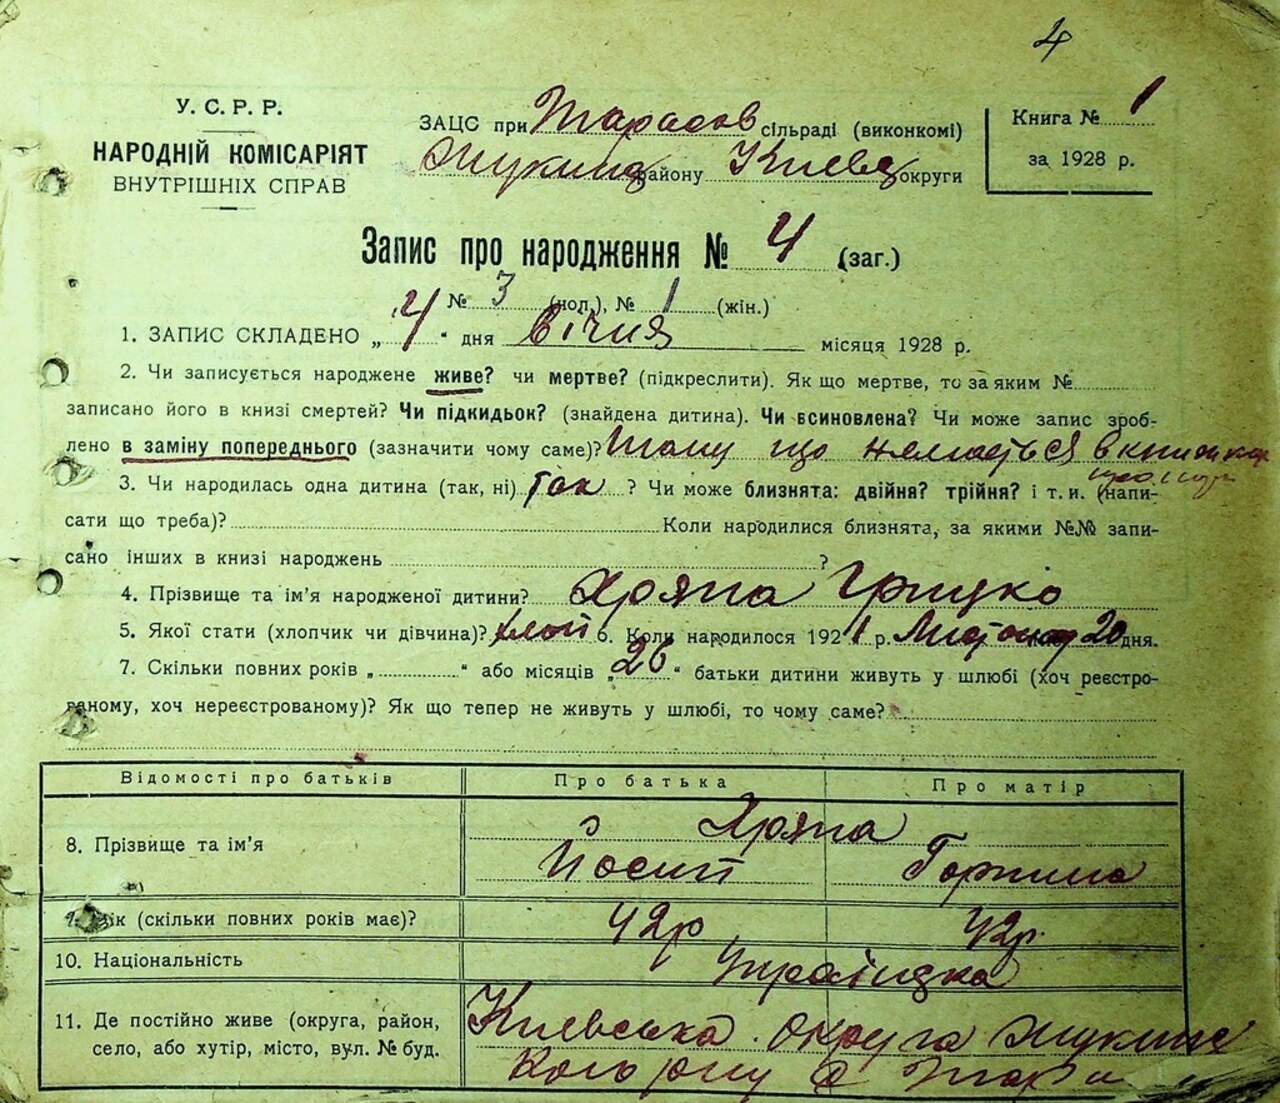 4
У.С.Р.Р.
НАРОДНІЙ КОМІСАРІЯТ
ВНУТРІШНІХ СПРАВ
ЗАЦС при Тарасов сільраді (виконкомі)
району Київс округи
Книга № 1
за 1928 р.
Запис про народження № 4 (заг.)
№ 3 (чол.), № 1 (жін.)
1. ЗАПИС СКЛАДЕНО „ 4 “ дня січня місяця 1928 р.
2. Чи записується народжене живе? чи мертве? (підкреслити). Як що мертве, то за яким №
записано його в книзі смертей? Чи підкидьок? (знайдена дитина). Чи всиновлена? Чи може запис зроб-
лено в заміну попереднього (зазначити чому саме)? Тому що немається в книжках
3. Чи народилась одна дитина (так, ні) так ? Чи може близнята: двійня? трійня? і т. и. (напи-
сати що треба)? Коли народилися близнята, за якими №№ запи-
сано інших в книзі народжень ?
4. Прізвище та ім'я народженої дитини? Хряпа Грицко
5. Якої стати (хлопчик чи дівчина)? 6. Коли народилося 1921 р. 20 дня.
7. Скільки повних років „ “ або місяців „ 26 “ батьки дитини живуть у шлюбі (хоч реєстро-
ваному, хоч нереєстрованому)? Як що тепер не живуть у шлюбі, то чому саме?
Відомості про батьків Про батька Про матір
8. Прізвище та ім'я Хряпа
Йосип Горпина
9. Вік (скільки повних років має)? 42р 42р.
10. Національність Українська
11. Де постійно живе (округа, район, Київська округа
село, або хутір, місто, вул. № буд.